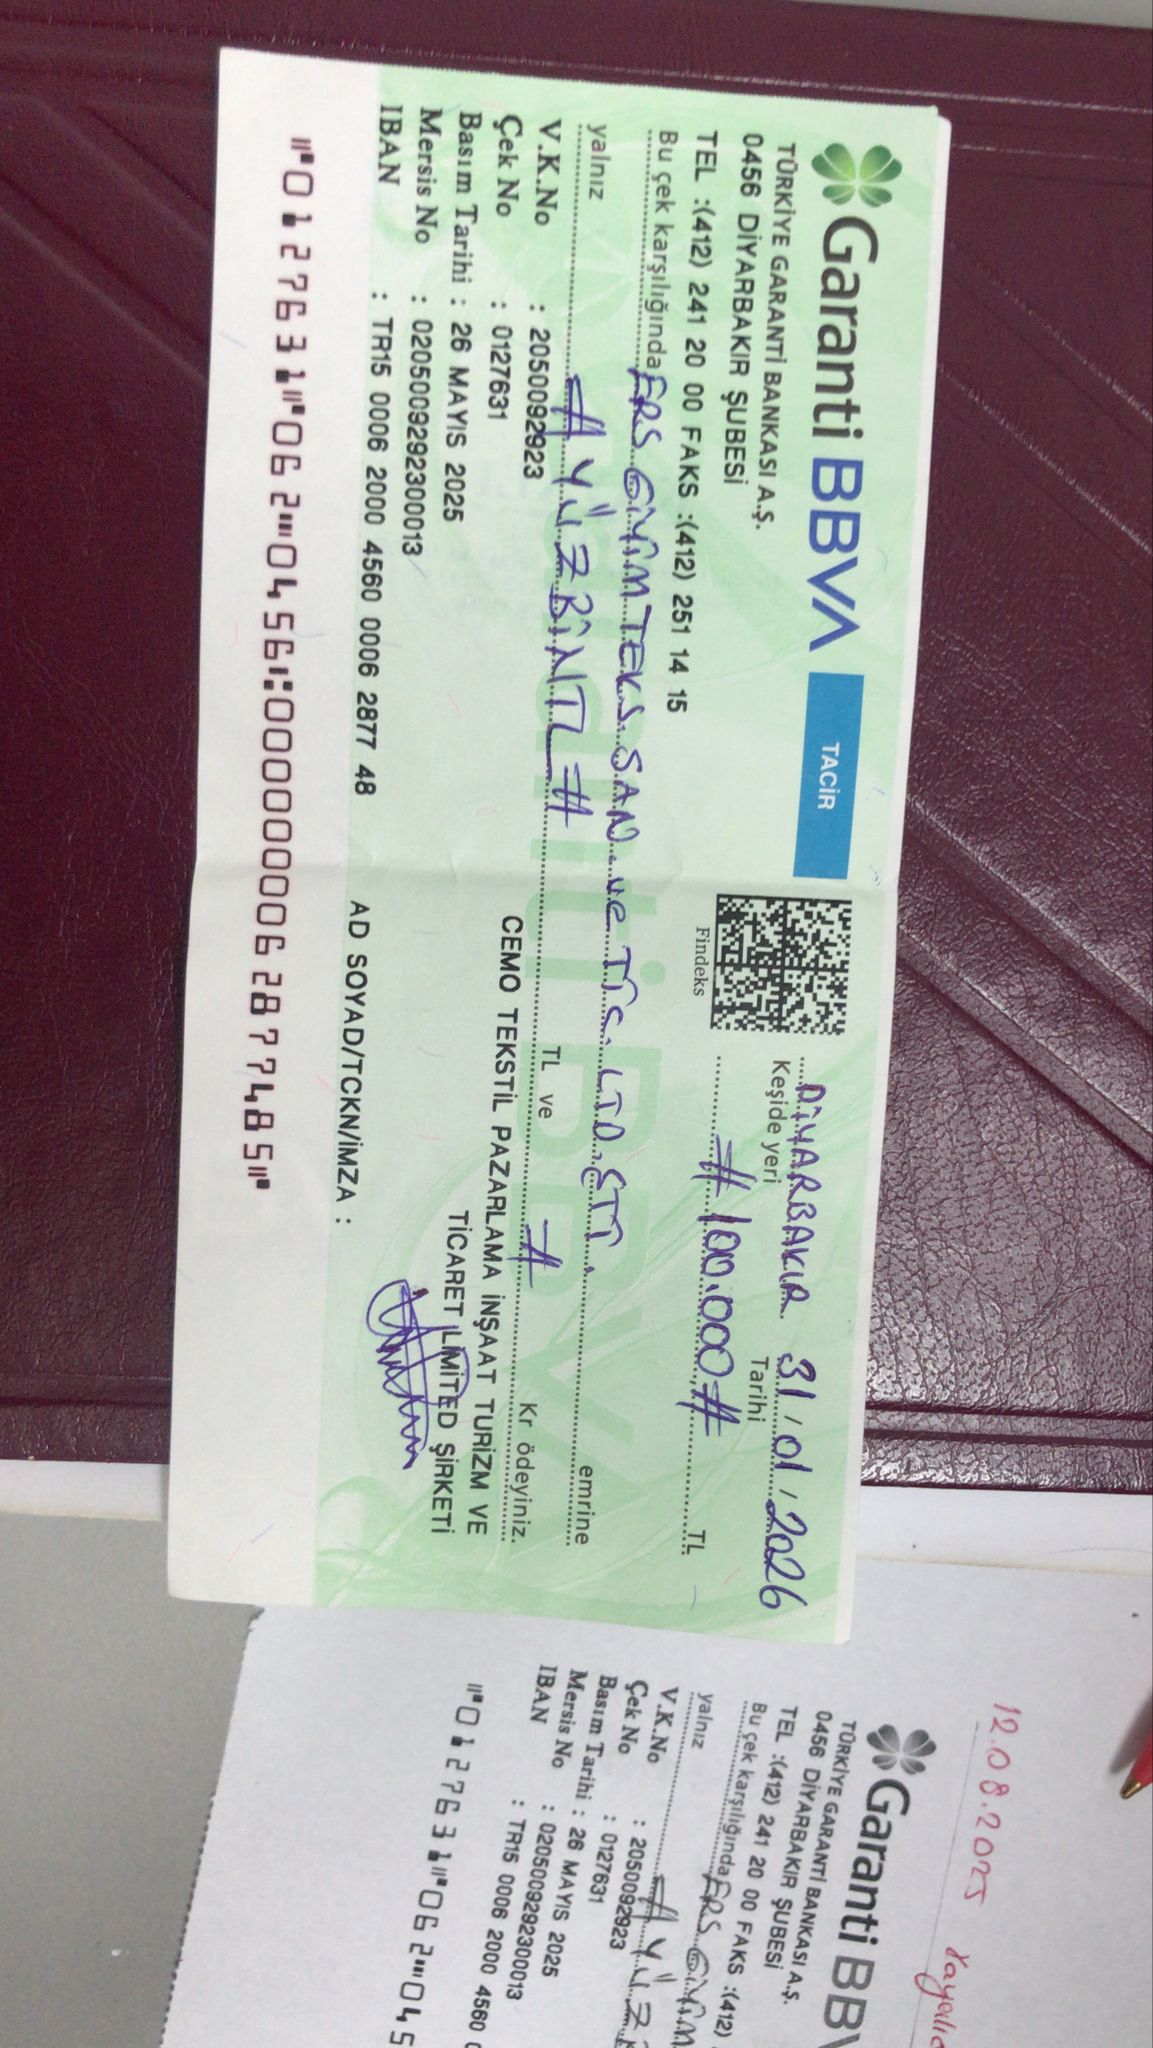 Garanti BBVA TACİR
TÜRKİYE GARANTİ BANKASI A.Ş.
0456 DİYARBAKIR ŞUBESİ
TEL :(412) 241 20 00 FAKS :(412) 251 14 15
Findeks
DİYARBAKIR 31/01/2026
Keşide yeri Tarihi
#100.000# TL
Bu çek karşılığında ERS GİYİM TEKS. SAN. ve TİC. LTD. ŞTİ. emrine
yalnız #YÜZBİNTL# TL ve # Kr ödeyiniz.
V.K.No : 2050092923
Çek No : 0127631
Basım Tarihi : 26 MAYIS 2025
Mersis No : 0205009292300013
IBAN : TR15 0006 2000 4560 0006 2877 48
CEMO TEKSTİL PAZARLAMA İNŞAAT TURİZM VE
TİCARET LİMİTED ŞİRKETİ
AD SOYAD/TCKN/İMZA :
⑈0127631⑈062⑉0456⑆000000062877485⑈
12.08.2025
Garanti BBV
TÜRKİYE GARANTİ BANKASI A.Ş.
0456 DİYARBAKIR ŞUBESİ
TEL :(412) 241 20 00 FAKS :(412)
Bu çek karşılığında ERS GİYİM
yalnız #YÜZB
V.K.No : 2050092923
Çek No : 0127631
Basım Tarihi : 26 MAYIS 2025
Mersis No : 0205009292300013
IBAN : TR15 0006 2000 4560
⑈0127631⑈062⑉045